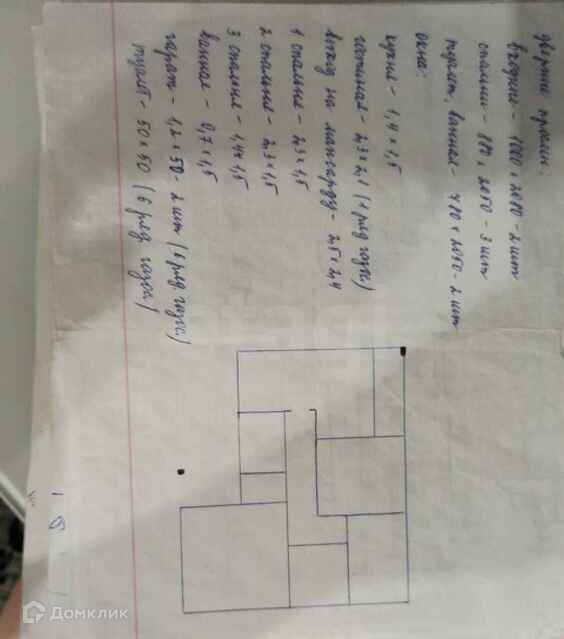 дверные проемы:
входные - 1000 х 2080 - 2 шт
спальни - 880 х 2050 - 3 шт
туалет, ванная - 780 х 2050 - 2 шт
окна:
кухня - 1,4 х 1,5
гостиная - 2,3 х 2,1 (1 ряд газос.)
выход на мансарду - 2,5 х 2,4
1 спальня - 2,3 х 1,5
2 спальня - 2,3 х 1,5
3 спальня - 1,4 х 1,5
ванная - 0,7 х 1,5
гараж - 1,2 х 50 - 2 шт (6 ряд газос.)
туалет - 50 х 50 (6 ряд газос.)
Домклик